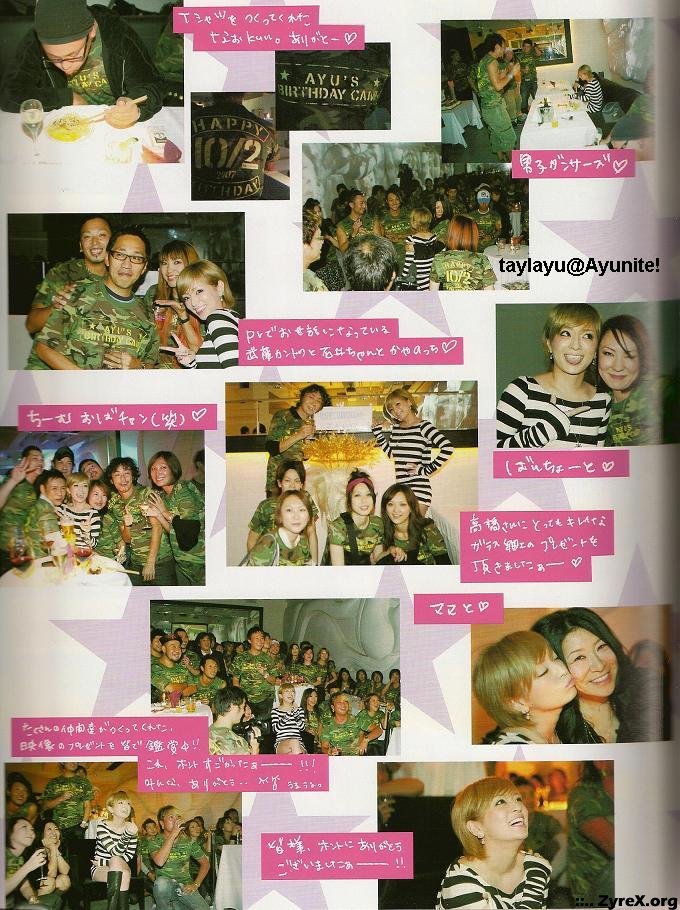 Tシャツをつくってくれた
なおkun。ありがとー♡
★ AYU'S ★
BIRTHDAY CAMP
HAPPY!
10/2
2007
BIRTHDAY
男子ダンサーズ♡
HAPPY!
10/2
taylayu@Ayunite!
AYU'S
BIRTHDAY CAMP
PVでお世話になっている
武藤カントクと石井ちゃんとかやのっち♡
ちーむ おばチャン(笑)♡
ばんちょーと♡
高橋さんにとってもキレイな
ガラス細工のプレゼントを
頂きましたぁー♡
ママと♡
たくさんの仲間達がつくってくれた、
映像のプレゼントを皆で鑑賞中!!
これ、ホントすごかったぁー!!!
みんな、ありがとう…
皆様、ホントにありがとう
ございましたぁー!!
::.. ZyreX.org